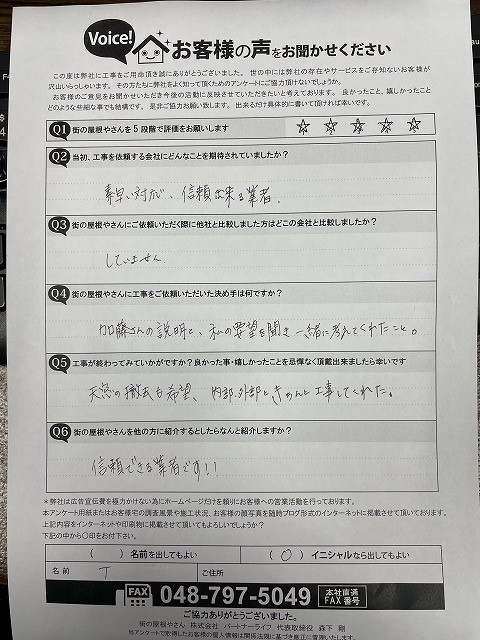 Voice! お客様の声をお聞かせください
この度は弊社に工事をご用命頂き誠にありがとうございました。 世の中には弊社の存在やサービスをご存知ないお客様が
沢山いらっしゃいます。 その方たちに弊社をよく知って頂くためのアンケートにご協力頂けないでしょうか。
お客様のご意見をお聞かせいただき今後の活動に反映させていただきたいと考えております。 良かったこと、嬉しかったこと
どのような些細な事でも結構です。 是非ご協力お願い致します。 出来るだけ具体的に書いて頂ければ幸いです。
Q1 街の屋根やさんを5段階で評価をお願いします
Q2 当初、工事を依頼する会社にどんなことを期待されていましたか?
素早い対応、信頼出来る業者。
Q3 街の屋根やさんにご依頼いただく際に他社と比較しました方はどこの会社と比較しましたか?
していません
Q4 街の屋根やさんに工事をご依頼いただいた決め手は何ですか?
加藤さんの説明と、私の要望を聞き一緒に考えてくれたこと。
Q5 工事が終わってみていかがですか? 良かった事・嬉しかったことを忌憚なく頂戴出来ましたら幸いです
天窓の撤去を希望、内部、外部ときちんと工事してくれた。
Q6 街の屋根やさんを他の方に紹介するとしたらなんと紹介しますか?
信頼できる業者です!!
*弊社は広告宣伝費を極力かけない為にホームページだけを頼りにお客様への営業活動を行っております。
本アンケート用紙またはお客様宅の調査風景や施工状況、お客様の顔写真を随時ブログ形式のインターネットに掲載させて頂いております。
上記内容をインターネットや印刷物に掲載させて頂いてもよろしいでしょうか?
下記の中から〇印をお付下さい。
( ) 名前を出してもよい (○) イニシャルなら出してもよい
名前 T ご住所
FAX 048-797-5049 本社直通 FAX番号
ご協力ありがとうございました。
街の屋根やさん 株式会社 パートナーライフ 代表取締役 森下 剛
当アンケートで取得したお客様の個人情報は関係法規に基づき厳正に管理いたします。